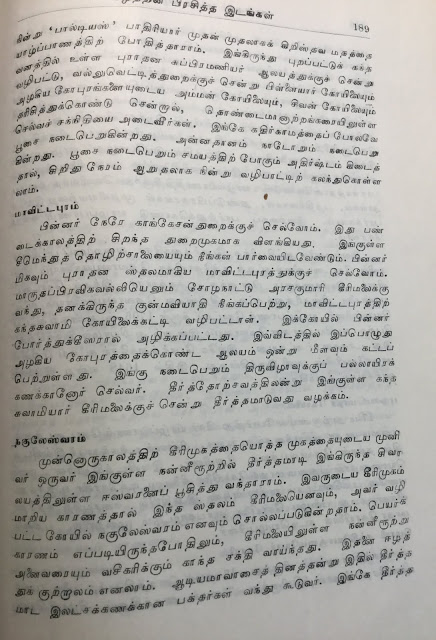 பிரசித்த இடங்கள்
189
கின்று 'பால்டியஸ்' பாதிரியார் முதன் முதலாகக் கிறிஸ்தவ மதத்தை
யாழ்ப்பாணத்திற் போதித்தாராம். இங்கிருந்து புறப்பட்டுக் கந்த
வனத்தில் உள்ள புராதன சுப்பிரமணியர் ஆலயத்துக்குச் சென்று
வழிபட்டு, வல்லுவெட்டித்துறைக்குச் சென்று பிள்ளையார் கோயிலையும்
அழகிய கோபுரங்களையுடைய அம்மன் கோயிலையும், சிவன் கோயிலையும்
தரிசித்துக்கொண்டு சென்றால், தொண்டைமானாற்றங்கரையிலுள்ள
செல்வச் சந்நிதியை அடைவீர்கள். இங்கே கதிர்காமத்தைப் போலவே
பூசை நடைபெறுகின்றது. அன்னதானம் நாடோறும் நடைபெறு
கின்றது. பூசை நடைபெறும் சமயத்திற் போகும் அதிர்ஷ்டம் கிடைத்
தால், சிறிது நேரம் ஆறுதலாக நின்று வழிபாட்டிற் கலந்துகொள்ள
லாம்.
மாவிட்டபுரம்
பின்னர் நேரே காங்கேசன்துறைக்குச் செல்வோம். இது பண்
டைக்காலத்திற் சிறந்த துறைமுகமாக விளங்கியது. இங்குள்ள
சீமேந்துத் தொழிற்சாலையையும் நீங்கள் பார்வையிடவேண்டும். பின்னர்
மிகவும் புராதன ஸ்தலமாகிய மாவிட்டபுரத்துக்குச் செல்வோம்.
மாருதப்பிரவிகவல்லியெனும் சோழநாட்டு அரசகுமாரி கீரிமலைக்கு
வந்து, தனக்கிருந்த குன்மவியாதி நீங்கப்பெற்று, மாவிட்டபுரத்திற்
கந்தசுவாமி கோயிலைக்கட்டி வழிபட்டாள். இக்கோயில் பின்னர்
போர்த்துக்கீஸரால் அழிக்கப்பட்டது. இவ்விடத்தில் இப்பொழுது
அழகிய கோபுரத்தைக்கொண்ட ஆலயம் ஒன்று மீளவும் கட்டப்
பெற்றுள்ளது. இங்கு நடைபெறும் திருவிழாவுக்குப் பல்லாயிரக்
கணக்கானோர் செல்வர். தீர்த்தோற்சவத்திலன்று இங்குள்ள கந்த
சுவாமியார் கீரிமலைக்குச் சென்று தீர்த்தமாடுவது வழக்கம்.
நகுலேஸ்வரம்
முன்னொருகாலத்திற் கீரிமுகத்தையொத்த முகத்தையுடைய முனி
வர் ஒருவர் இங்குள்ள நன்னீரூற்றில் தீர்த்தமாடி இங்கிருந்த சிவா
லயத்திலுள்ள ஈஸ்வரனைப் பூசித்து வந்தாராம். இவருடைய கீரிமுகம்
மாறிய காரணத்தால் இந்த ஸ்தலம் கீரிமலையெனவும், அவர் வழி
பட்ட கோயில் நகுலேஸ்வரம் எனவும் சொல்லப்படுகின்றதாம். பெயர்க்
காரணம் எப்படியிருந்தபோதிலும், கீரிமலையிலுள்ள நன்னீரூற்று
அனைவரையும் வசீகரிக்கும் காந்த சக்தி வாய்ந்தது. இதனை ஈழத்
துக் குற்றாலம் எனலாம். ஆடியமாவாசைத் தினத்தன்று இதில் தீர்த்த
மாட இலட்சக்கணக்கான பக்தர்கள் வந்து கூடுவர். இங்கே தீர்த்த